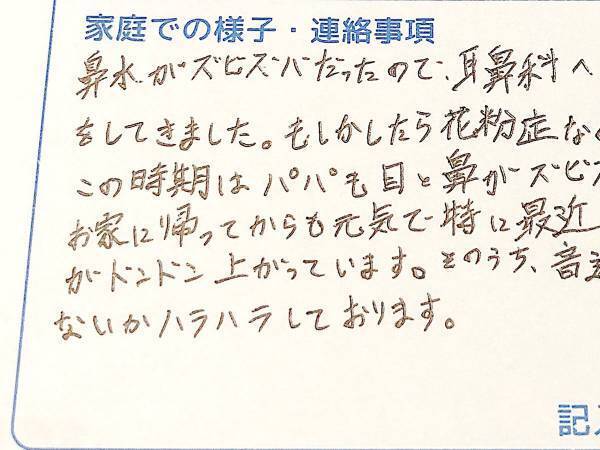 家庭での様子・連絡事項
鼻水がズビズバだったので、耳鼻科へ
をしてきました。もしかしたら花粉症な
この時期はパパも目と鼻がズビズ
お家に帰ってからも元気で特に最近
がドンドン上がっています。そのうち、音
ないかハラハラしております。
記入